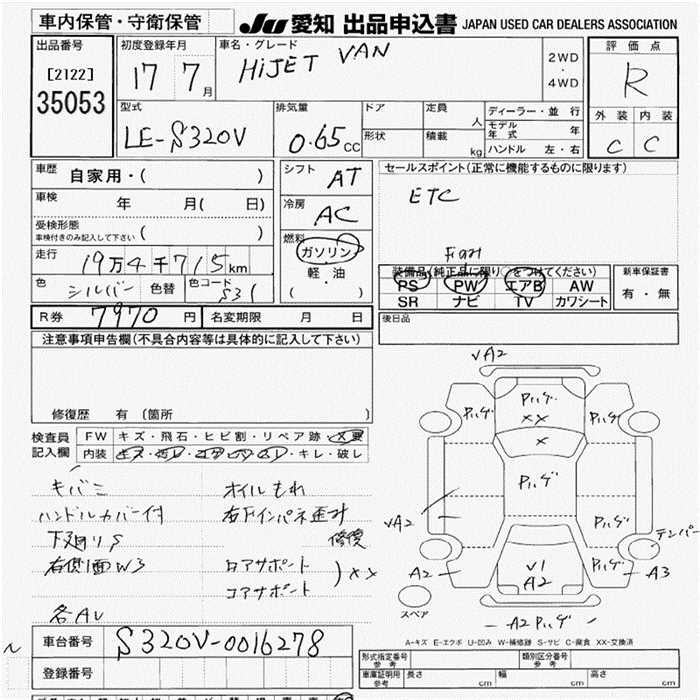 車内保管・守衛保管
JU 愛知 出品申込書 JAPAN USED CAR DEALERS ASSOCIATION
出品番号
[2122]
35053
初度登録年月
17 7月
車名・グレード
HiJET VAN
2WD
・
4WD
評価点
R
外装 内装
C C
型式
LE-S320V
排気量
0.65CC
ドア
形状
定員 人
積載 kg
ディーラー・並行
モデル年式 年
ハンドル 左・右
車歴
自家用・( )
車検 年 月( 日)
受検形態
車検付きのみ記入して下さい ( )
走行
19万4千715km
色 シルバー 色替 色コード S31
シフト AT
冷房 AC
燃料
ガソリン
軽・油
( ・ )
セールスポイント(正常に機能するものに限ります)
ETC
装備品(純正品に限り○をつけてください)
PS PW エアB AW
SR ナビ TV カワシート
新車保証書
有・無
R券 7970円 名変期限 月 日
後日品
注意事項申告欄(不具合内容等は具体的に記入して下さい)
修復歴 有 (箇所 )
検査員
記入欄
FW キズ・飛石・ヒビ割・リペア跡・X要
内装 ・キレ・破し
キバミ オイルもれ
ハンドルカバー付 右下インパネ歪み
下廻りS 修復
右側面W3 コアサポート ) XX
各AU
車台番号 S320V-0016278
登録番号
√A2
Pハゲ
Pハゲ
XX
Pハゲ
X
Pハゲ
√A2
Pハゲ
テンパー
A2
√1
A2
Pハゲ
A3
スペア
A2 Pハゲ
A-キズ E-エクボ U-凹み W-補修跡 S-サビ C-腐食 XX-交換済
形式指定番号
参考
類別区分番号
参考
車庫証明用
参考
長さ cm 幅 cm 高さ cm